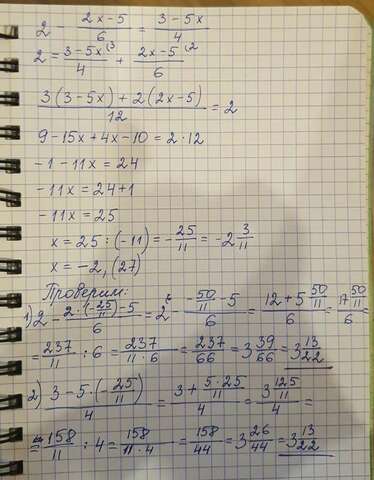 2 - (2x-5)/6 = (3-5x)/4
2 = (3-5x)/4 (3 + (2x-5)/6 (2
(3(3-5x)+2(2x-5))/12 = 2
9-15x+4x-10 = 2·12
-1-11x = 24
-11x = 24+1
-11x = 25
x = 25:(-11) = -25/11 = -2 3/11
x = -2,(27)
Проверим:
1) 2 - (2·(-25/11)-5)/6 = 2 - (-50/11 -5)/6 = (12+5 50/11)/6 = (17 50/11)/6 =
= 237/11 : 6 = 237/(11·6) = 237/66 = 3 39/66 = 3 13/22
2) (3-5·(-25/11))/4 = (3+ (5·25)/11)/4 = (3 125/11)/4 =
= 158/11 : 4 = 158/(11·4) = 158/44 = 3 26/44 = 3 13/22